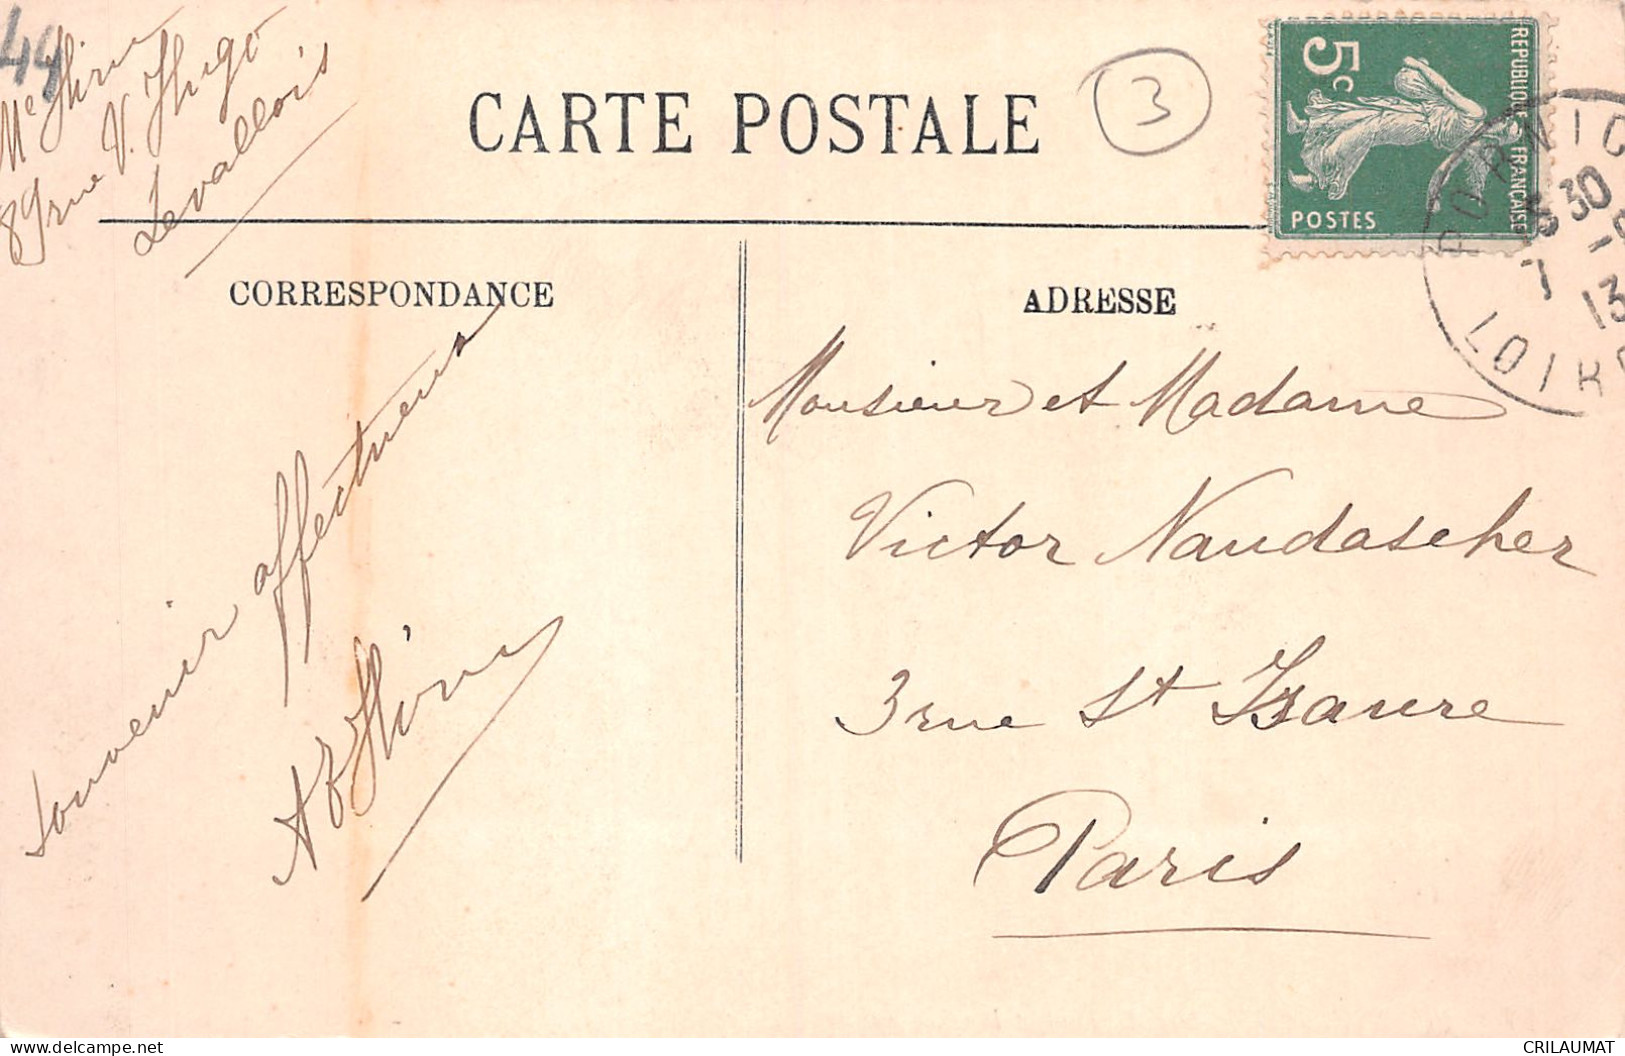 44
Me
89 rue V. Hugo
Levallois
CARTE POSTALE
3
5c
REPUBLIQUE FRANÇAISE
POSTES
PORNIC
30
7
13
LOIRE
CORRESPONDANCE
ADRESSE
Souvenir affectueux
Monsieur et Madame
Victor Naudascher
3 rue St Isaure
Paris
delcampe.net
CRILAUMAT